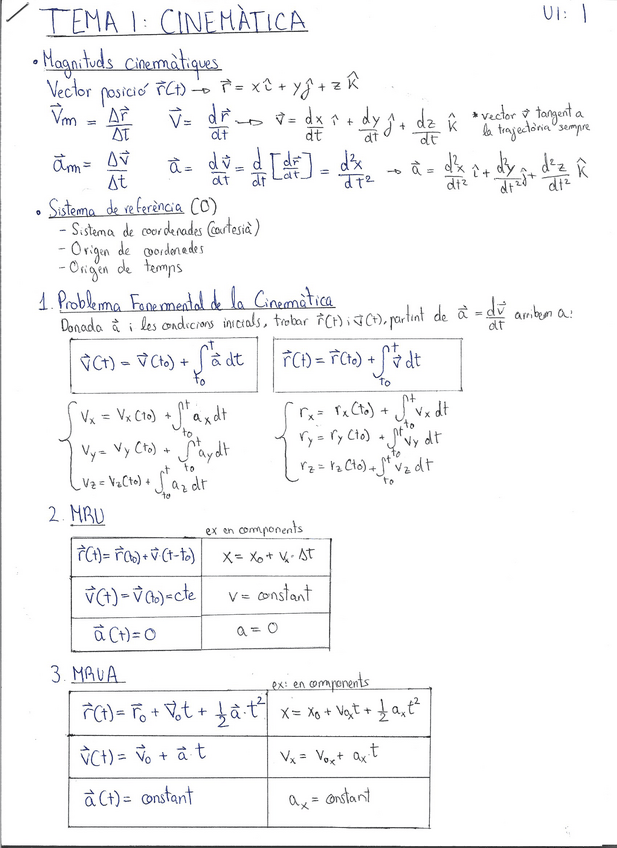 TEMA 1: CINEMÀTICA
UI: 1
• Magnituds cinemàtiques
Vector posició r⃗(t) → r⃗ = xî + yĵ + z k̂
V⃗m = Δr⃗/Δt   V⃗ = dr⃗/dt → v⃗ = dx/dt î + dy/dt ĵ + dz/dt k̂   * vector v⃗ tangent a
la trajectòria sempre
a⃗m = Δv⃗/Δt   a⃗ = dv⃗/dt = d/dt [dr⃗/dt] = d²x/dt² → a⃗ = d²x/dt² î + d²y/dt² ĵ + d²z/dt² k̂
• Sistema de referència (O)
- Sistema de coordenades (cartesià)
- Origen de coordenades
- Origen de temps
1. Problema Fonermental de la Cinemàtica
Donada a⃗ i les condicions inicials, trobar r⃗(t) i v⃗(t), partint de a⃗ = dv⃗/dt arribem a:
v⃗(t) = v⃗(t₀) + ∫ₜ₀ᵗ a⃗ dt   r⃗(t) = r⃗(t₀) + ∫ₜ₀ᵗ v⃗ dt
Vx = Vx(t₀) + ∫ₜ₀ᵗ ax dt   rx = rx(t₀) + ∫ₜ₀ᵗ vx dt
Vy = Vy(t₀) + ∫ₜ₀ᵗ ay dt   ry = ry(t₀) + ∫ₜ₀ᵗ vy dt
Vz = Vz(t₀) + ∫ₜ₀ᵗ az dt   rz = rz(t₀) + ∫ₜ₀ᵗ vz dt
2. MRU
ex en components
r⃗(t) = r⃗(t₀) + v⃗·(t-t₀)   x = x₀ + vx·Δt
v⃗(t) = v⃗(t₀) = cte   v = constant
a⃗(t) = 0   a = 0
3. MRUA
ex: en components
r⃗(t) = r⃗₀ + v⃗₀t + 1/2 a⃗·t²   x = x₀ + v₀ₓt + 1/2 aₓt²
v⃗(t) = v⃗₀ + a⃗·t   vₓ = v₀ₓ + aₓ·t
a⃗(t) = constant   aₓ = constant